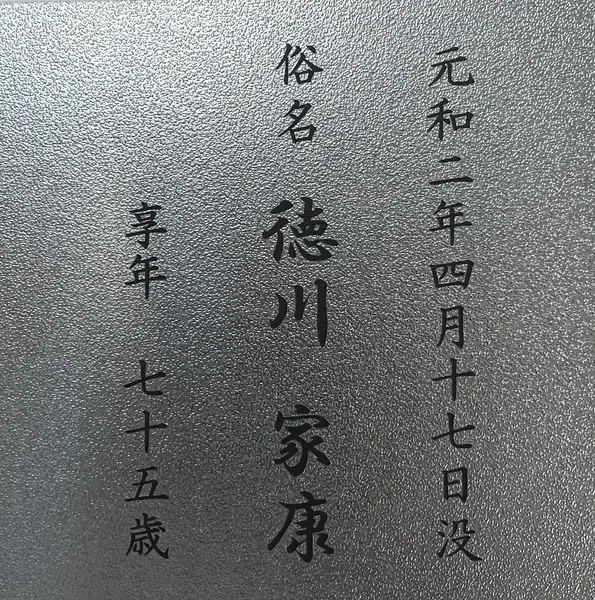 元和二年四月十七日没
俗名 徳川 家康
享年 七十五歳